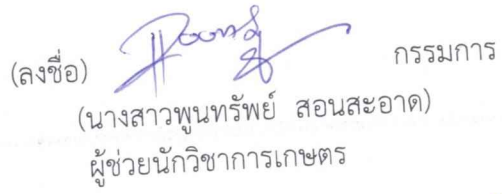 (ลงชื่อ) กรรมการ
(นางสาวพูนทรัพย์ สอนสะอาด)
ผู้ช่วยนักวิชาการเกษตร